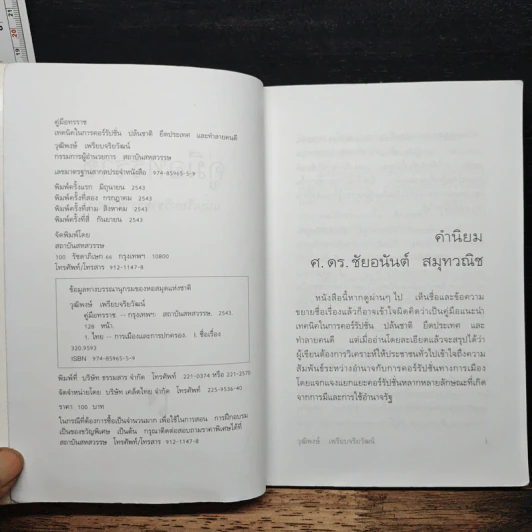 คู่มือทรราช
เทคนิคในการคอร์รัปชั่น ปล้นชาติ ยึดประเทศ และทำลายคนดี
วุฒิพงษ์ เพรียบจริยวัฒน์
กรรมการผู้อำนวยการ สถาบันสหสวรรษ
เลขมาตรฐานสากลประจำหนังสือ 974-85965-5-9
พิมพ์ครั้งแรก มิถุนายน 2543
พิมพ์ครั้งที่สอง กรกฎาคม 2543
พิมพ์ครั้งที่สาม สิงหาคม 2543
พิมพ์ครั้งที่สี่ กันยายน 2543
จัดพิมพ์โดย
สถาบันสหสวรรษ
100 รัชดาภิเษก 66 กรุงเทพฯ 10800
โทรศัพท์/โทรสาร 912-1147-8
ข้อมูลทางบรรณานุกรมของหอสมุดแห่งชาติ
วุฒิพงษ์ เพรียบจริยวัฒน์
คู่มือทรราช. -- กรุงเทพฯ: สถาบันสหสวรรษ, 2543.
128 หน้า.
1. ไทย -- การเมืองและการปกครอง. I. ชื่อเรื่อง
320.9593
ISBN 974-85965-5-9
พิมพ์ที่ บริษัท ธรรมสาร จำกัด โทรศัพท์ 221-0374 หรือ 221-2570
จัดจำหน่ายโดย บริษัท เคล็ดไทย จำกัด โทรศัพท์ 225-9536-40
ราคา 100 บาท
ในกรณีที่ต้องการซื้อเป็นจำนวนมาก เพื่อใช้ในการสอน การฝึกอบรม
เป็นของขวัญพิเศษ เป็นต้น กรุณาติดต่อสอบถามราคาพิเศษได้ที่
สถาบันสหสวรรษ โทรศัพท์/โทรสาร 912-1147-8
คำนิยม
ศ.ดร.ชัยอนันต์ สมุทวณิช
หนังสือนี้หากดูผ่านๆ ไป เห็นชื่อและข้อความ
ขยายชื่อเรื่องแล้วก็อาจเข้าใจผิดคิดว่าเป็นคู่มือแนะนำ
เทคนิคในการคอร์รัปชั่น ปล้นชาติ ยึดประเทศ และ
ทำลายคนดี แต่เมื่ออ่านโดยละเอียดแล้วจะสรุปได้ว่า
ผู้เขียนต้องการวิเคราะห์ให้ประชาชนทั่วไปเข้าใจถึงความ
สัมพันธ์ระหว่างอำนาจกับการคอร์รัปชั่นทางการเมือง
โดยแจกแจงแยกแยะคอร์รัปชั่นหลากหลายลักษณะที่เกิด
จากการมีและการใช้อำนาจรัฐ
วุฒิพงษ์ เพรียบจริยวัฒน์
1